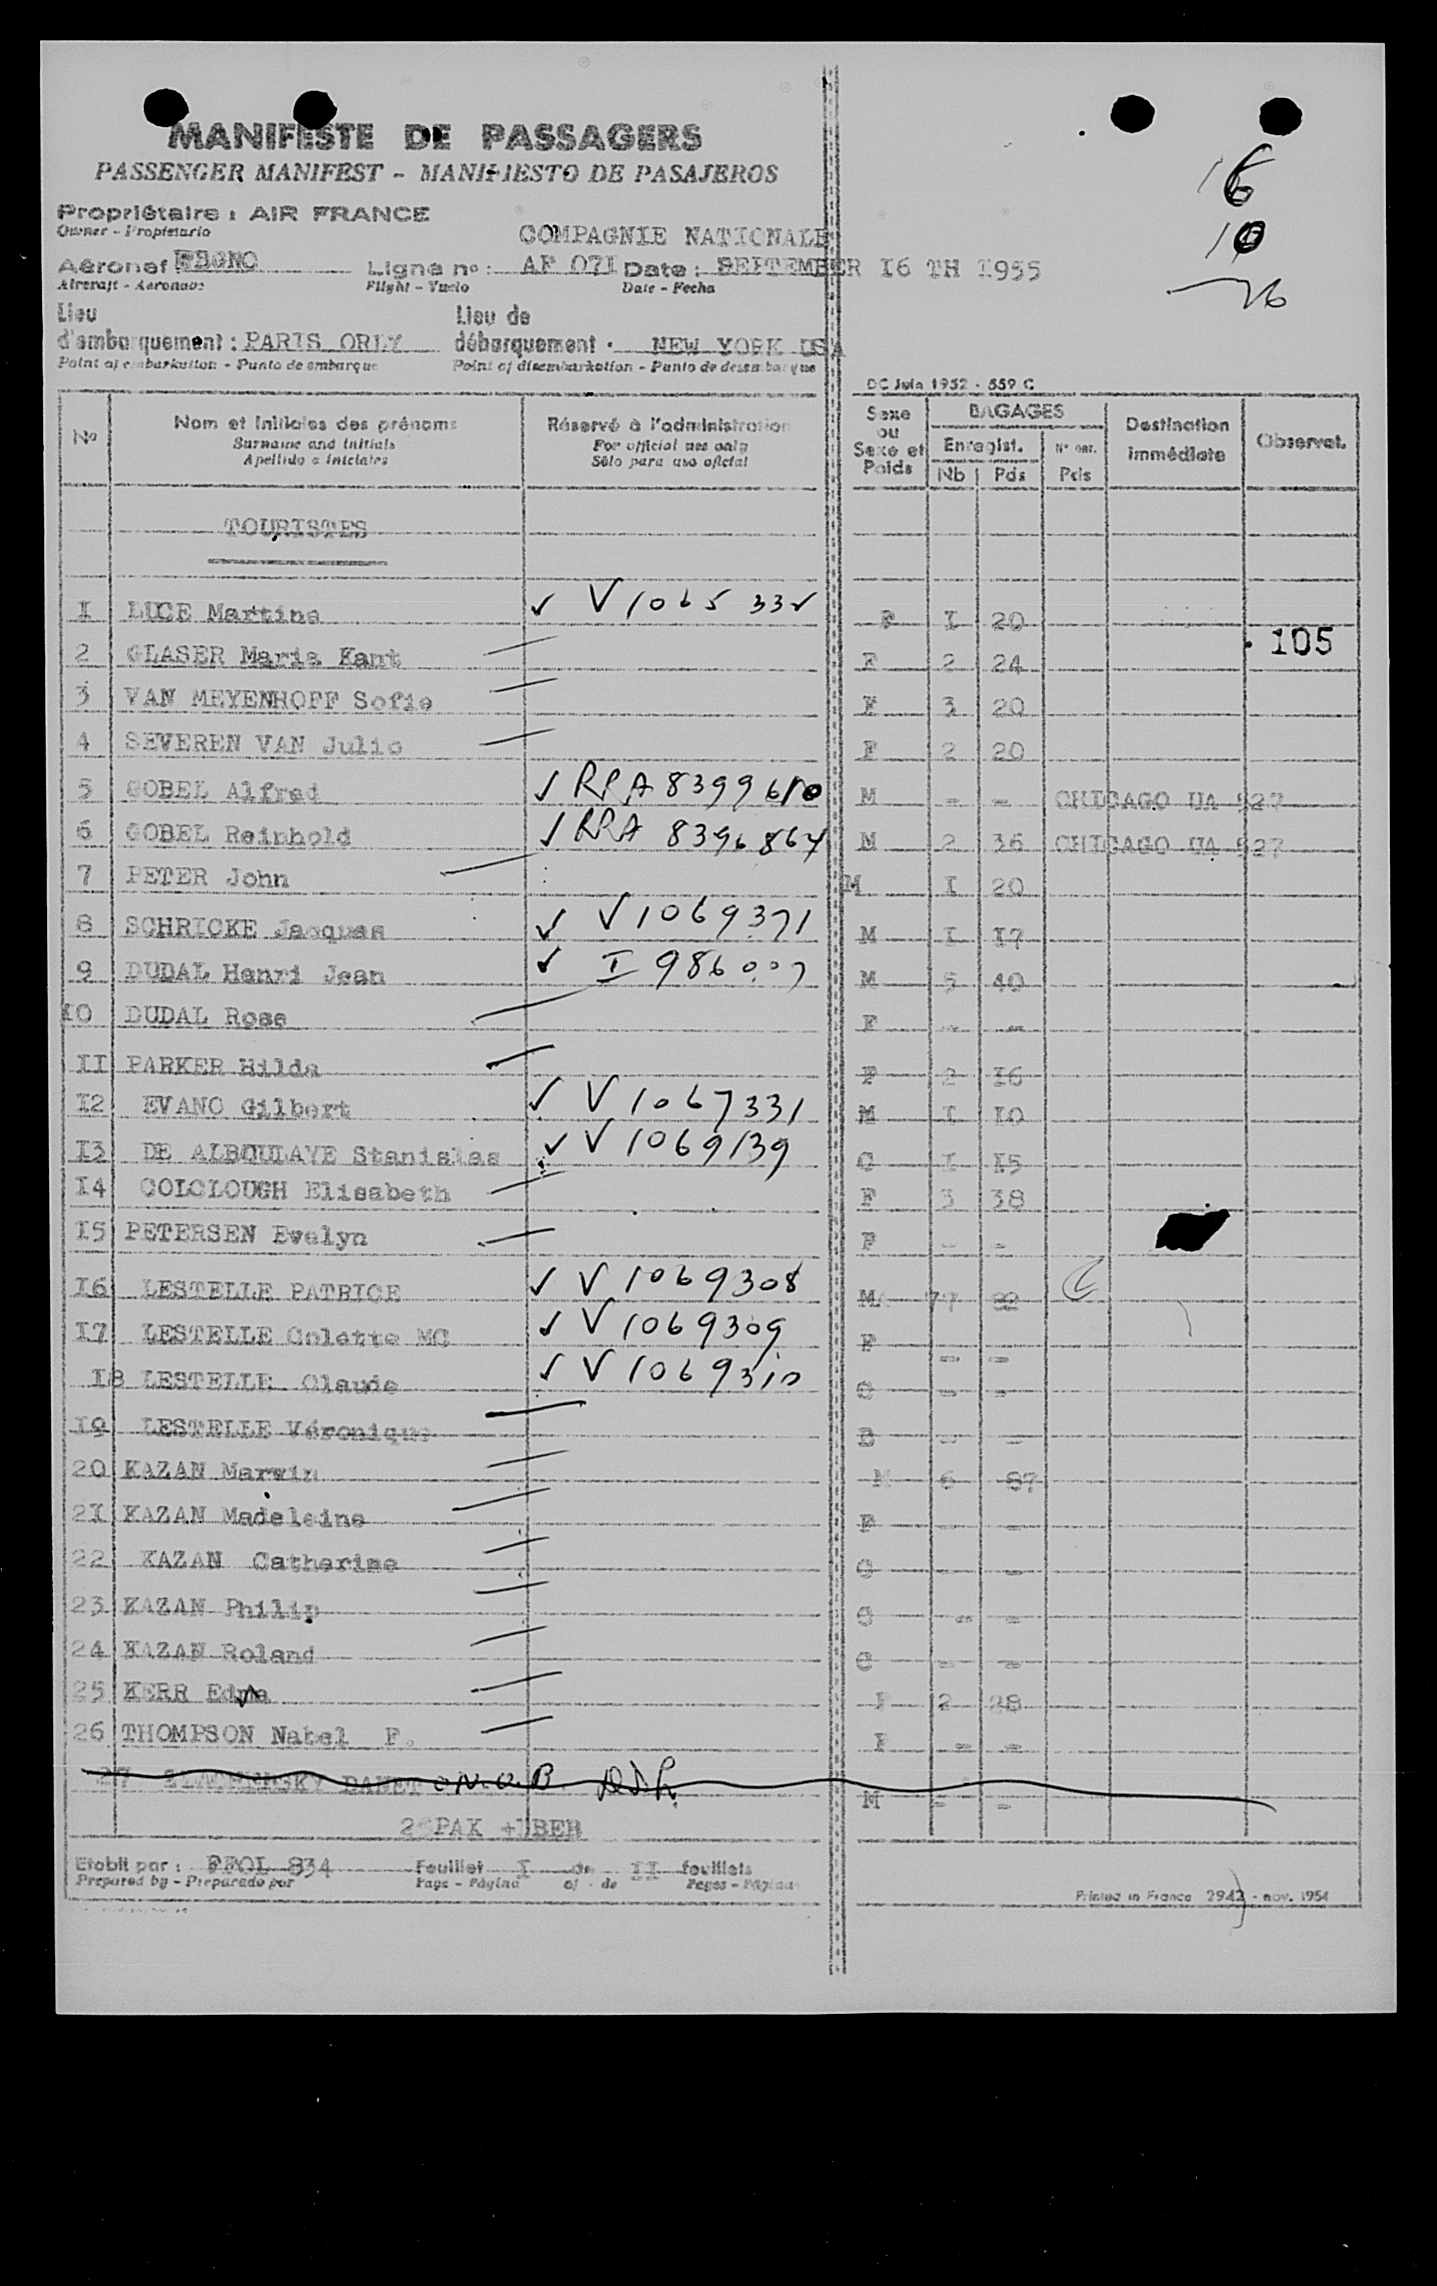 MANIFESTE DE PASSAGERS
PASSENGER MANIFEST - MANIFIESTO DE PASAJEROS
16
10
26
Propriétaire : AIR FRANCE
Owner - Propietario
COMPAGNIE NATIONALE
Aéronef Ligne nº : AF 071 Date : SEPTEMBER I6 TH I955
Aircraft - Aeronave Flight - Vuelo Date - Fecha
Lieu d'embarquement : PARIS ORLY Lieu de débarquement : NEW YORK USA
Point of embarkation - Punto de embarque Point of disembarkation - Punto de desembarque
DC Juin 1952 - 559 C
Nº Nom et initiales des prénoms Réservé à l'administration Sexe ou Sexe et Poids BAGAGES Destination immédiate Observat.
Surname and initials For official use only Enregist. Nº enr.
Apellido e iniciales Sólo para uso oficial Nb Pds Pds
TOURISTES
I LUCE Martine ✓ V 1065 332 F I 20
105
2 GLASER Maria Kant F 2 24
3 VAN MEYENHOFF Sofie F 3 20
4 SEVEREN VAN Julio F 2 20
5 GOBEL Alfred ✓ RRA 8399610 M - - CHICAGO UA 527
6 GOBEL Reinhold ✓ RRA 8396867 M 2 36 CHICAGO UA 527
7 PETER John M I 20
8 SCHRICKE Jacques ✓ V 1069371 M I I7
9 DUDAL Henri Jean ✓ I 986007 M 5 40
I0 DUDAL Rose F - -
II PARKER Hilda F 2 I6
I2 EVANO Gilbert ✓ V 1067331 M I I0
I3 DE ALBOULAYE Stanislas ✓ V 1069139 C I I5
I4 COLCLOUGH Elisabeth F 3 38
I5 PETERSEN Evelyn F - -
I6 LESTELLE PATRICE ✓ V 1069308 M
I7 LESTELLE Colette MC ✓ V 1069309 F - -
I8 LESTELLE Claude ✓ V 1069310 C - -
I9 LESTELLE Véronique B - -
20 KAZAN Marwin M 6 87
2I KAZAN Madeleine F - -
22 KAZAN Catherine C - -
23 KAZAN Philip C - -
24 KAZAN Roland C - -
25 KERR Edna F 2 28
26 THOMPSON Nabel F. F - -
27 N.O.B. M - -
PAX + IBEB
Etabli par : 834 Feuillet I de II feuillets
Prepared by - Preparado por Page - Página of - de Pages - Páginas
Printed in France 2942 - nov. 1954